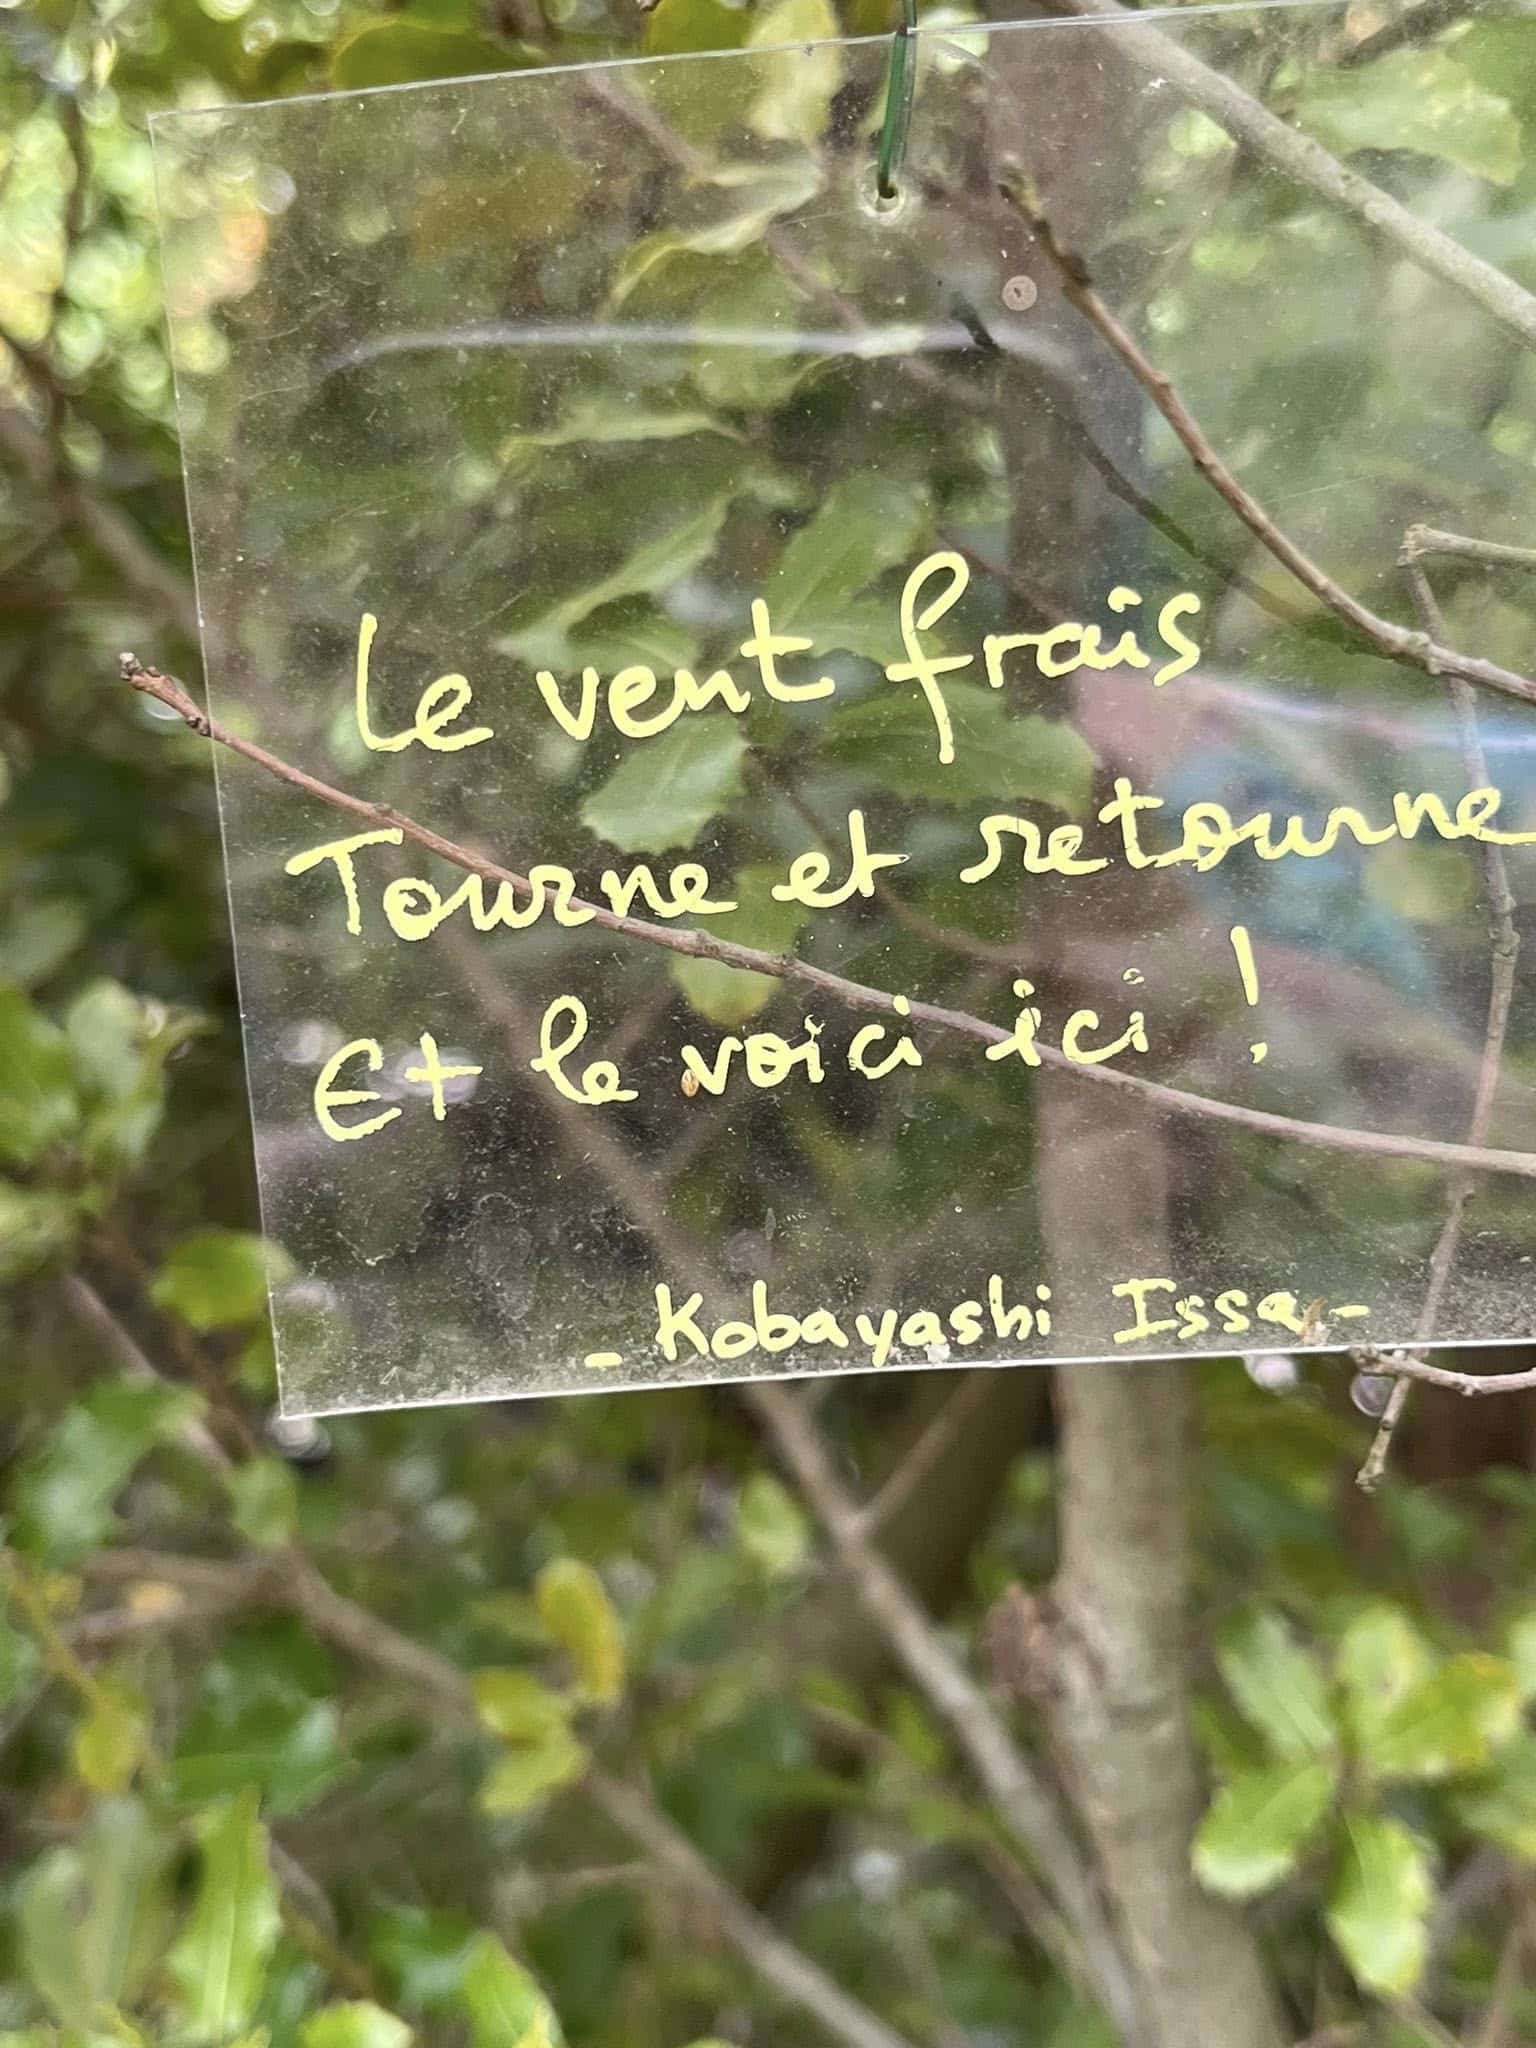 Le vent frais
Tourne et retourne
Et le voici ici !
- Kobayashi Issa -